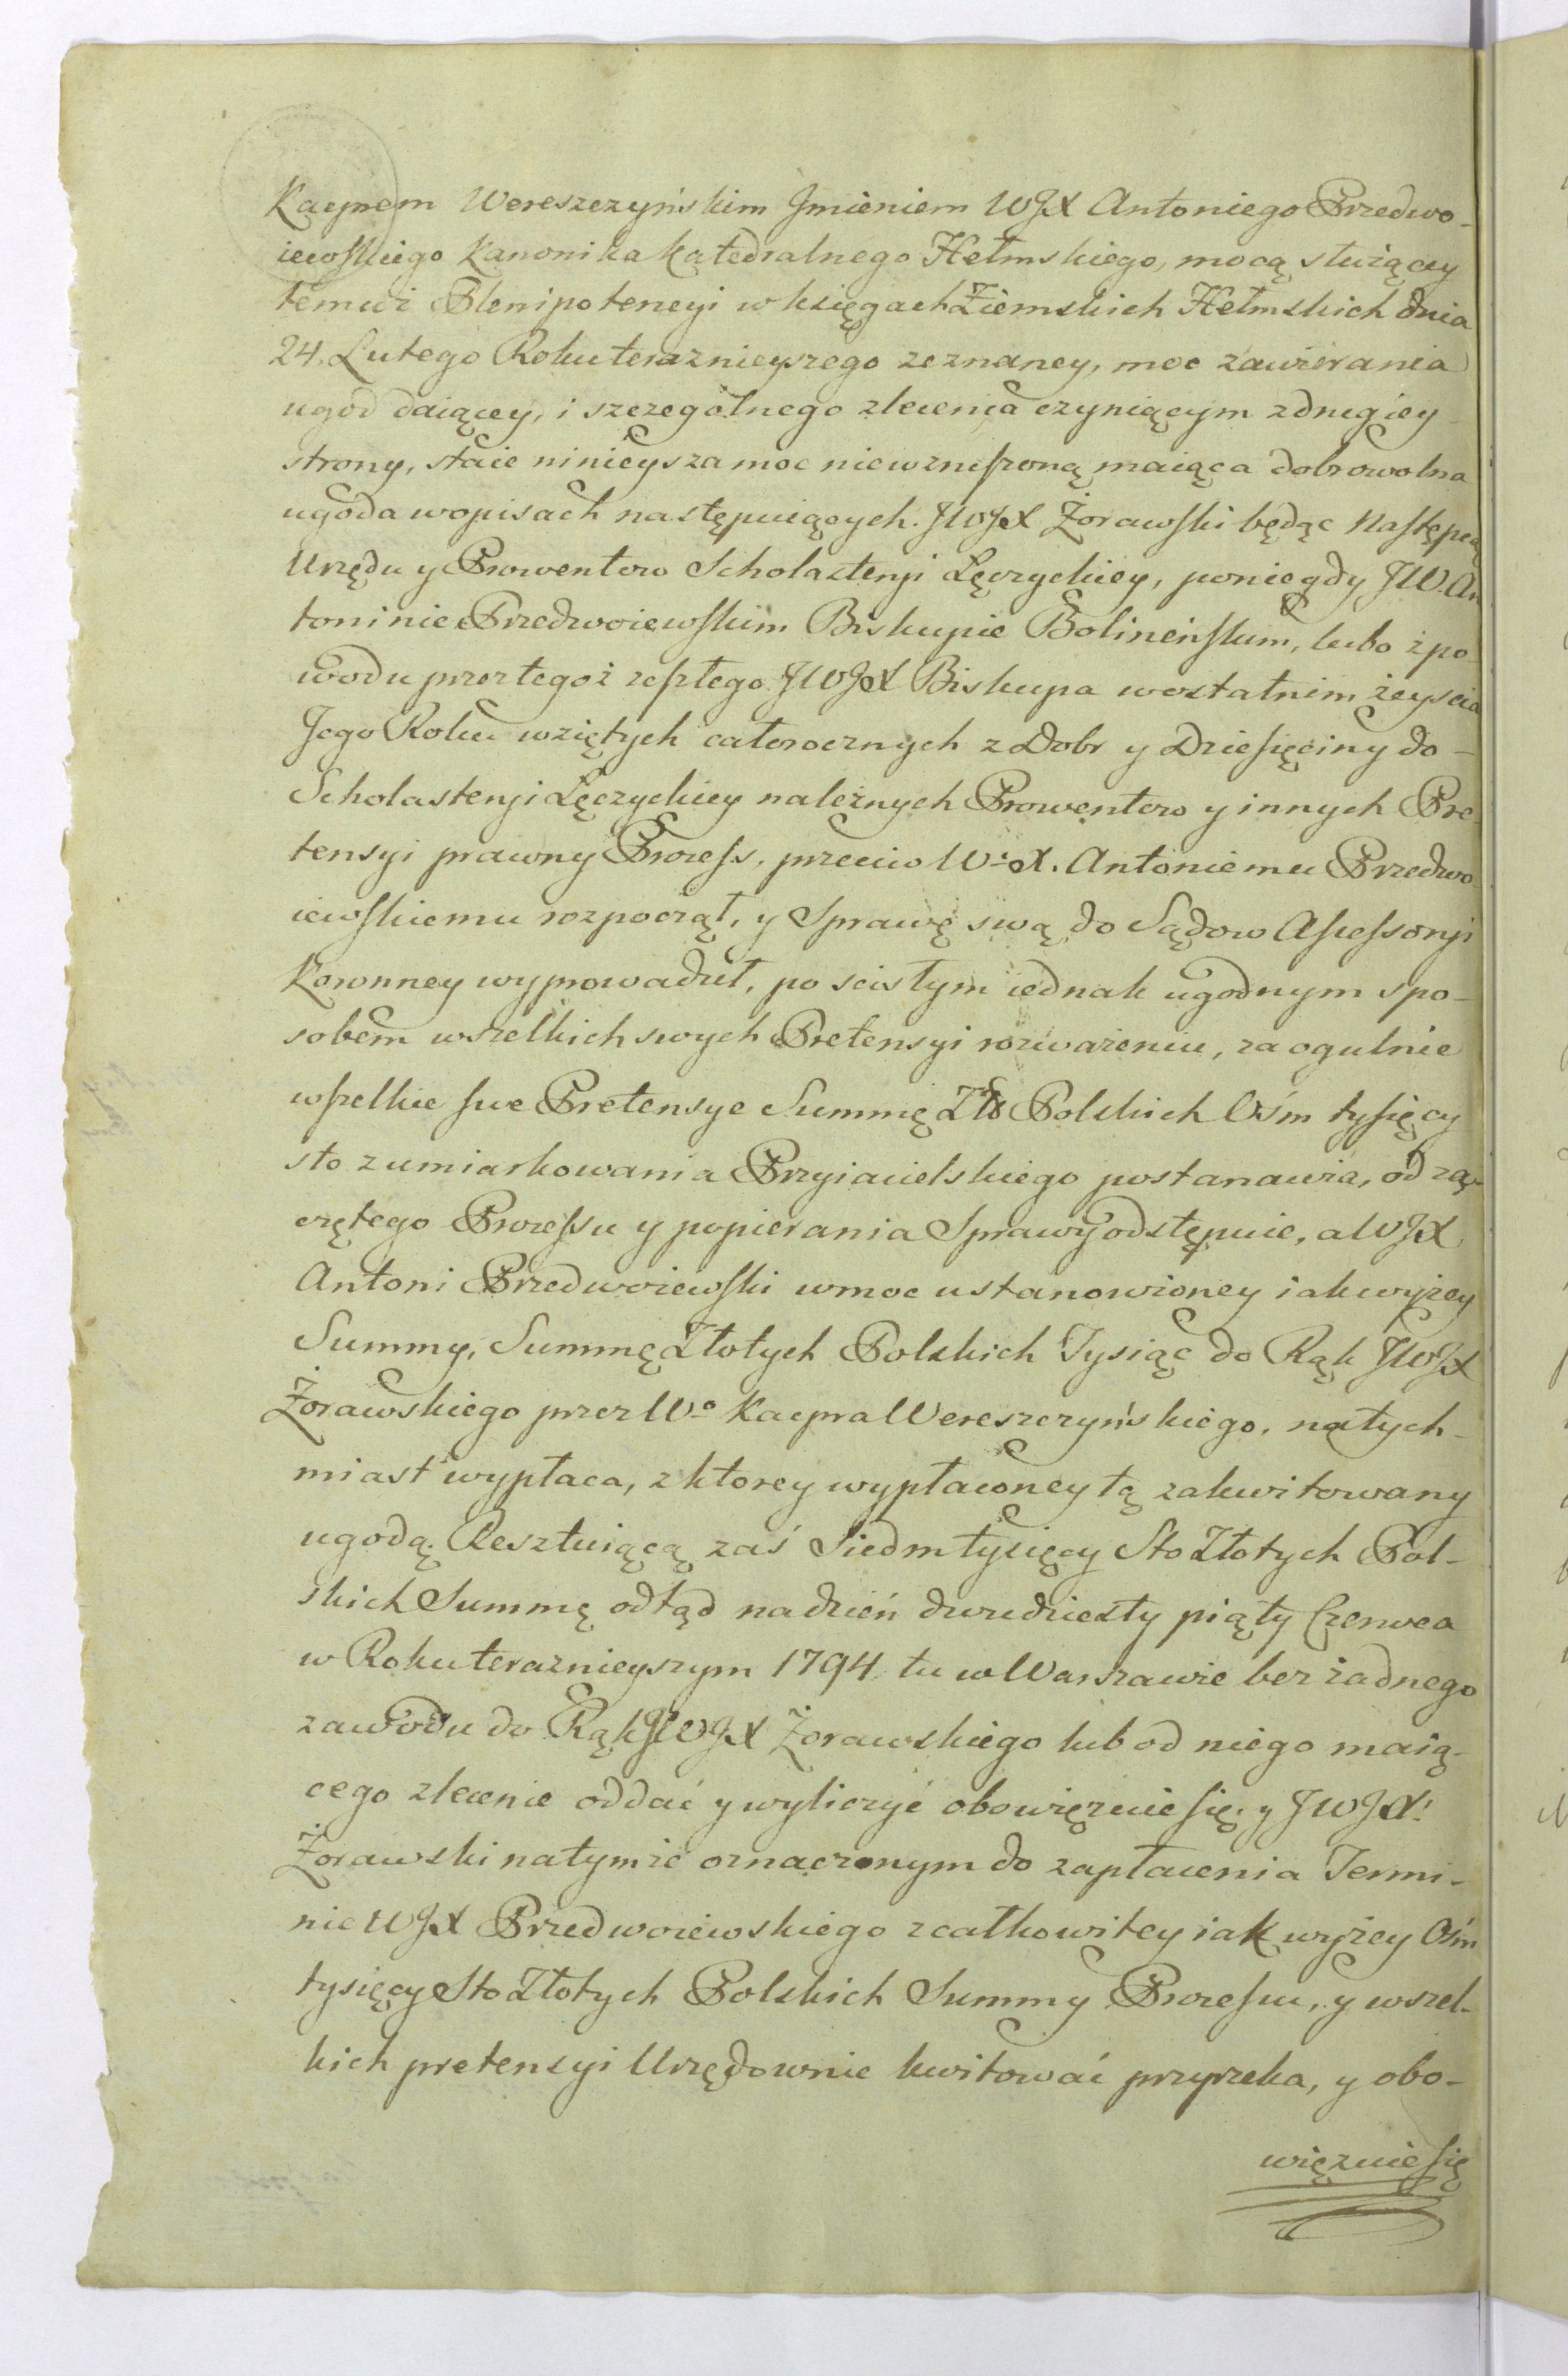 Kacprem Wereszczyńskim Jmieniem WJX Antoniego Przedwo-
iewskiego Kanonika Katedralnego Hełmskiego, mocą służącey
temuż Plenipotencyi w księgach Ziemskich Hełmskich dnia
24. Lutego Roku teraznieyszego zeznaney, moc zawierania
ugod daiącey, i szczegolnego zlecenia czyniącym z drugiey
strony, staie ninieysza moc niewzruszoną maiąca dobrowolna
ugoda w opisach następuiących. JWJX Żorawski będąc Następcą
Urzędu y Prowentow Scholasteryi Łęczyckiey, po niegdy JW. An
toninie Przedwoiewskim Biskupie Bolineńskim, lubo z po
wodu przez tegoż zeszłego JWJX Biskupa w ostatnim zeyscia
Jego Roku wziętych całorocznych z Dobr y Dziesięciny do-
Scholasteryi Łęczyckiey należnych Prowentow y innych Pre
tensyi prawny Process, przeciw W: X. Antoniemu Przedwo
iewskiemu rozpoczął, y Sprawę swą do Sądow Assessoryi
Koronney wyprowadził, po scisłym iednak ugodnym spo-
sobem wszelkich swych Pretensyi rozważeniu, za ogulnie
wszelkie swe Pretensye Summę Zł Polskich Ośm tysięcy
sto z umiarkowania Przyiacielskiego postanawia, od za-
czętego Processu y popierania Sprawy odstępuie, a WJX
Antoni Przedwoiewski w moc ustanowioney iak wyżey
Summy, Summę Złotych Polskich Tysiąc do Rąk JWJX
Żorawskiego przez Wo Kacpra Wereszczyńskiego, natych-
miast wypłaca, z ktorey wypłaconey tą zakwitowany
ugodą. Resztuiącą zaś Siedm tysięcy Sto Złotych Pol-
skich Summę odtąd na dzień dwudziesty piąty Czerwca
w Roku teraznieyszym 1794 tu w Warszawie bez żadnego
zawodu do Rąk JWJX Żorawskiego lub od niego maią-
cego zlecenie oddać y wyliczyć obowięzuie się, y JWJX
Żorawski na tymże oznaczonym do zapłacenia Termi-
nie WJX Przedwoiewskiego z całkowitey iak wyżey Ośm
tysięcy Sto Złotych Polskich Summy Processu, y wszel-
kich pretensyi Urzędownie kwitować przyrzeka, y obo-
więzuie się